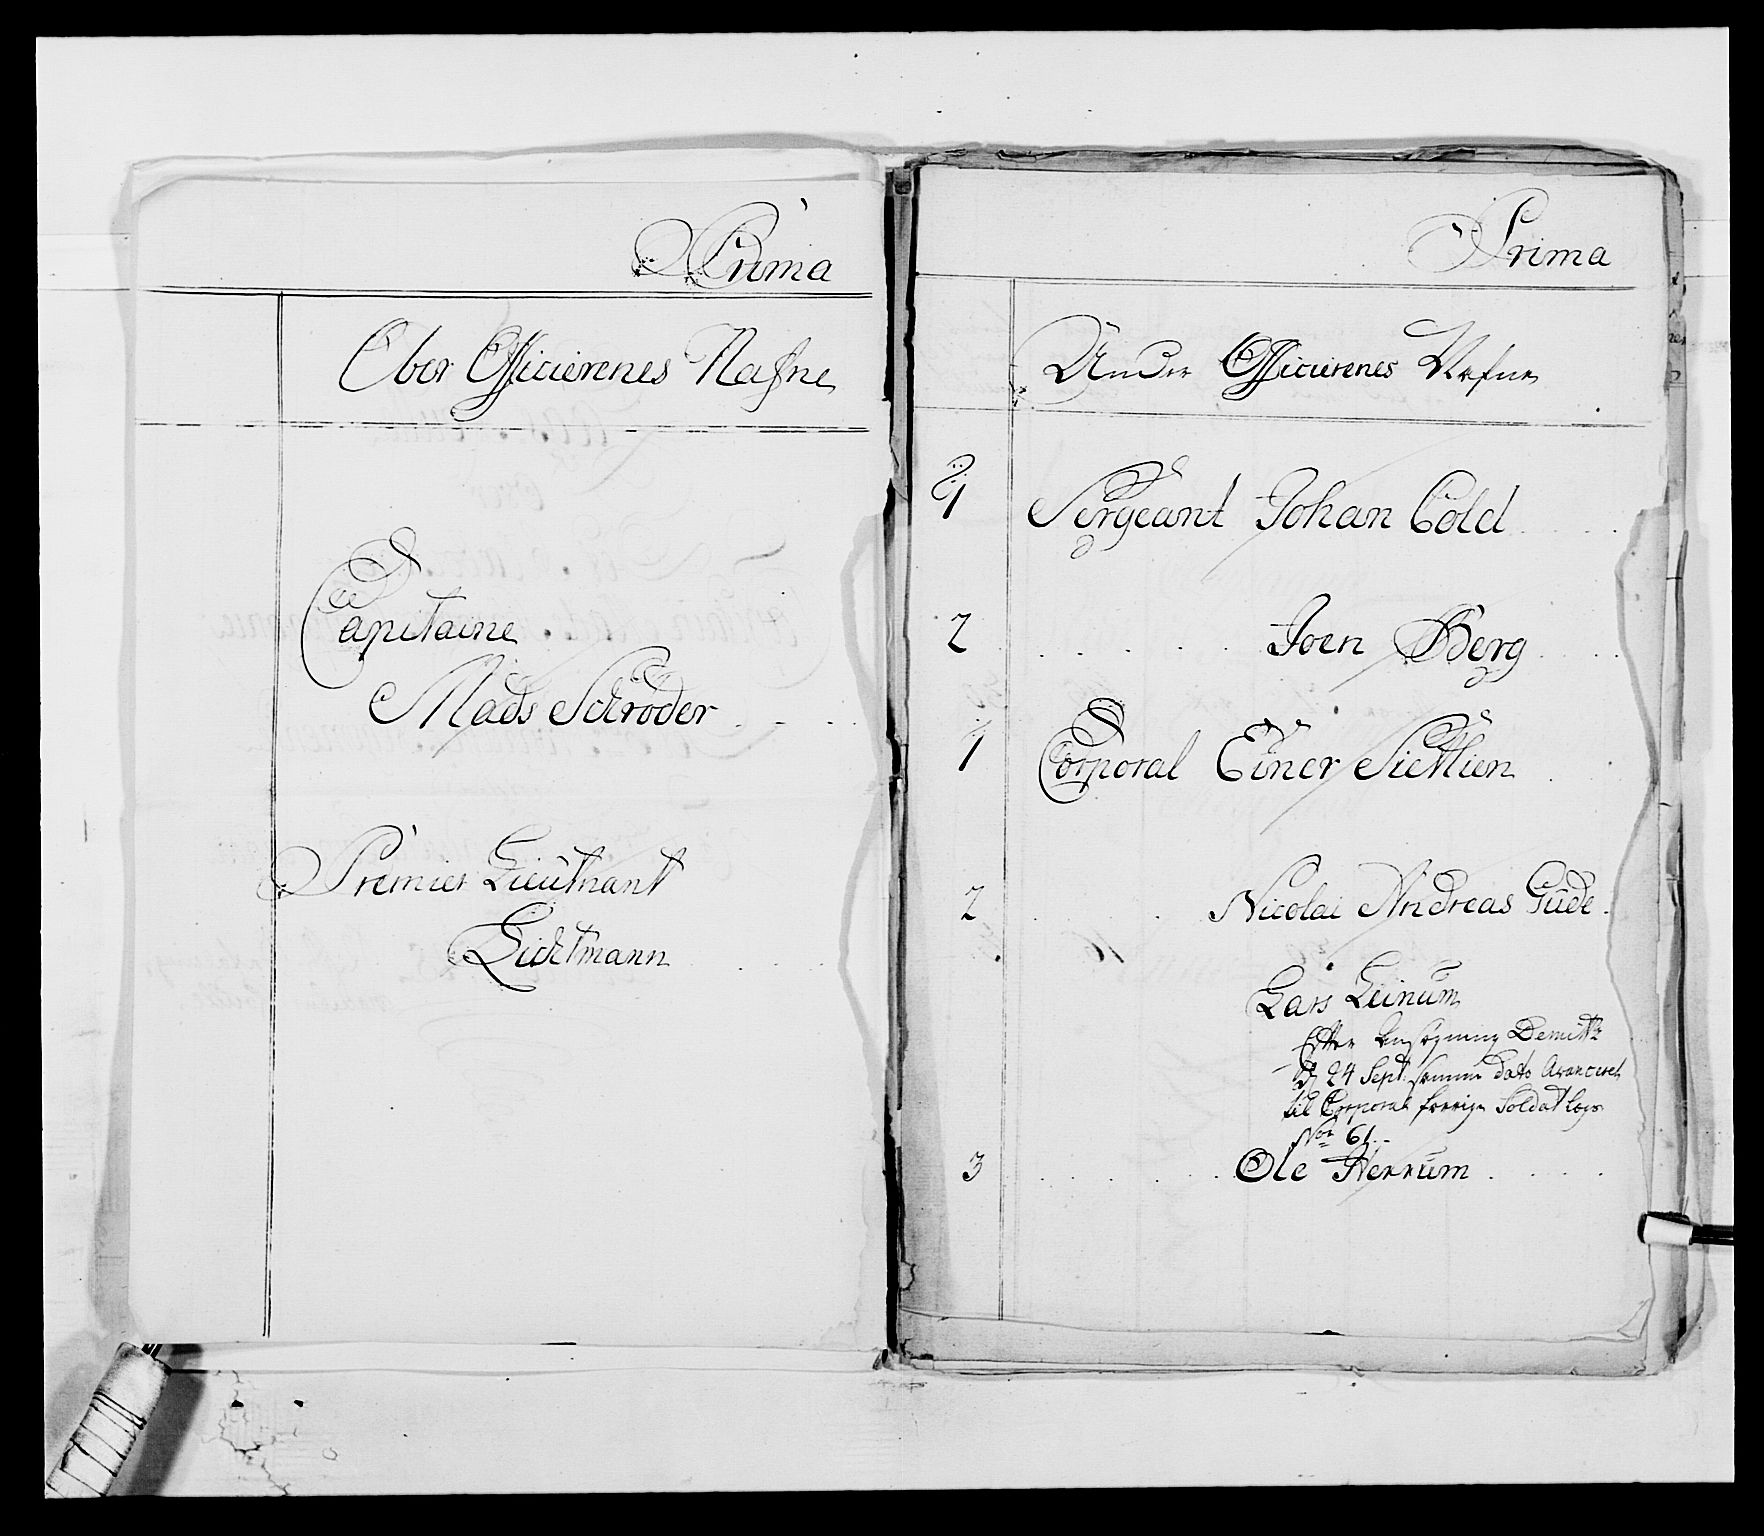 Prima
Ober Officierenes Nafne
Capitaine
Mads Schrøder
Premier Lieutnant
Lichtmann
Prima
Under Officierenes Nafne
1 Sergeant Johan Cold
2 Joen Berg
1 Corporal Einer Sietlien
2 Nicolai Andreas Gude
Lars Leinum
Efter Ansøgning Demitt:
d 24 Sept: samme dato Avanceret
til Corporal forrige Soldat Lægs
No 61
3 Ole Herrum